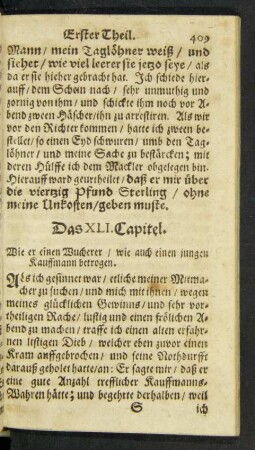 Erster Theil. 409
Mann/ mein Taglöhner weiß/ und
siehet/ wie viel leerer sie jetzo seye/ als
da er sie hieher gebracht hat. Ich schiede hier-
auff/ dem Schein nach/ sehr unmuthig und
zornig von ihm/ und schickte ihm noch vor A-
bend zween Häscher/ ihn zu arrestiren. Als wir
vor den Richter kommen/ hatte ich zween be-
stellet/ so einen Eyd schwuren/ umb den Tag-
löhner/ und meine Sache zu bestärcken; mit
deren Hülffe ich dem Mackler obgelegen bin.
Hierauff ward geurtheilet/ daß er mir über
die viertzig Pfund Sterling/ ohne
meine Unkosten/ geben muste.
Das XLI. Capitel.
Wie er einen Wucherer/ wie auch einen jungen
Kauffmann betrogen.
Als ich gesinnet war/ etliche meiner Mitma-
cher zu suchen/ und mich mit ihnen/ wegen
meines glücklichen Gewinns/ und sehr vor-
theiligen Rache/ lustig und einen frölichen A-
bend zu machen/ traffe ich einen alten erfahr-
nen listigen Dieb/ welcher eben zuvor einen
Kram auffgebrochen/ und seine Nothdurfft
darauß geholet hatte/ an: Er sagte mir/ daß er
eine gute Anzahl trefflicher Kauffmanns-
Wahren hätte; und begehrte derhalben/ weil
S ich